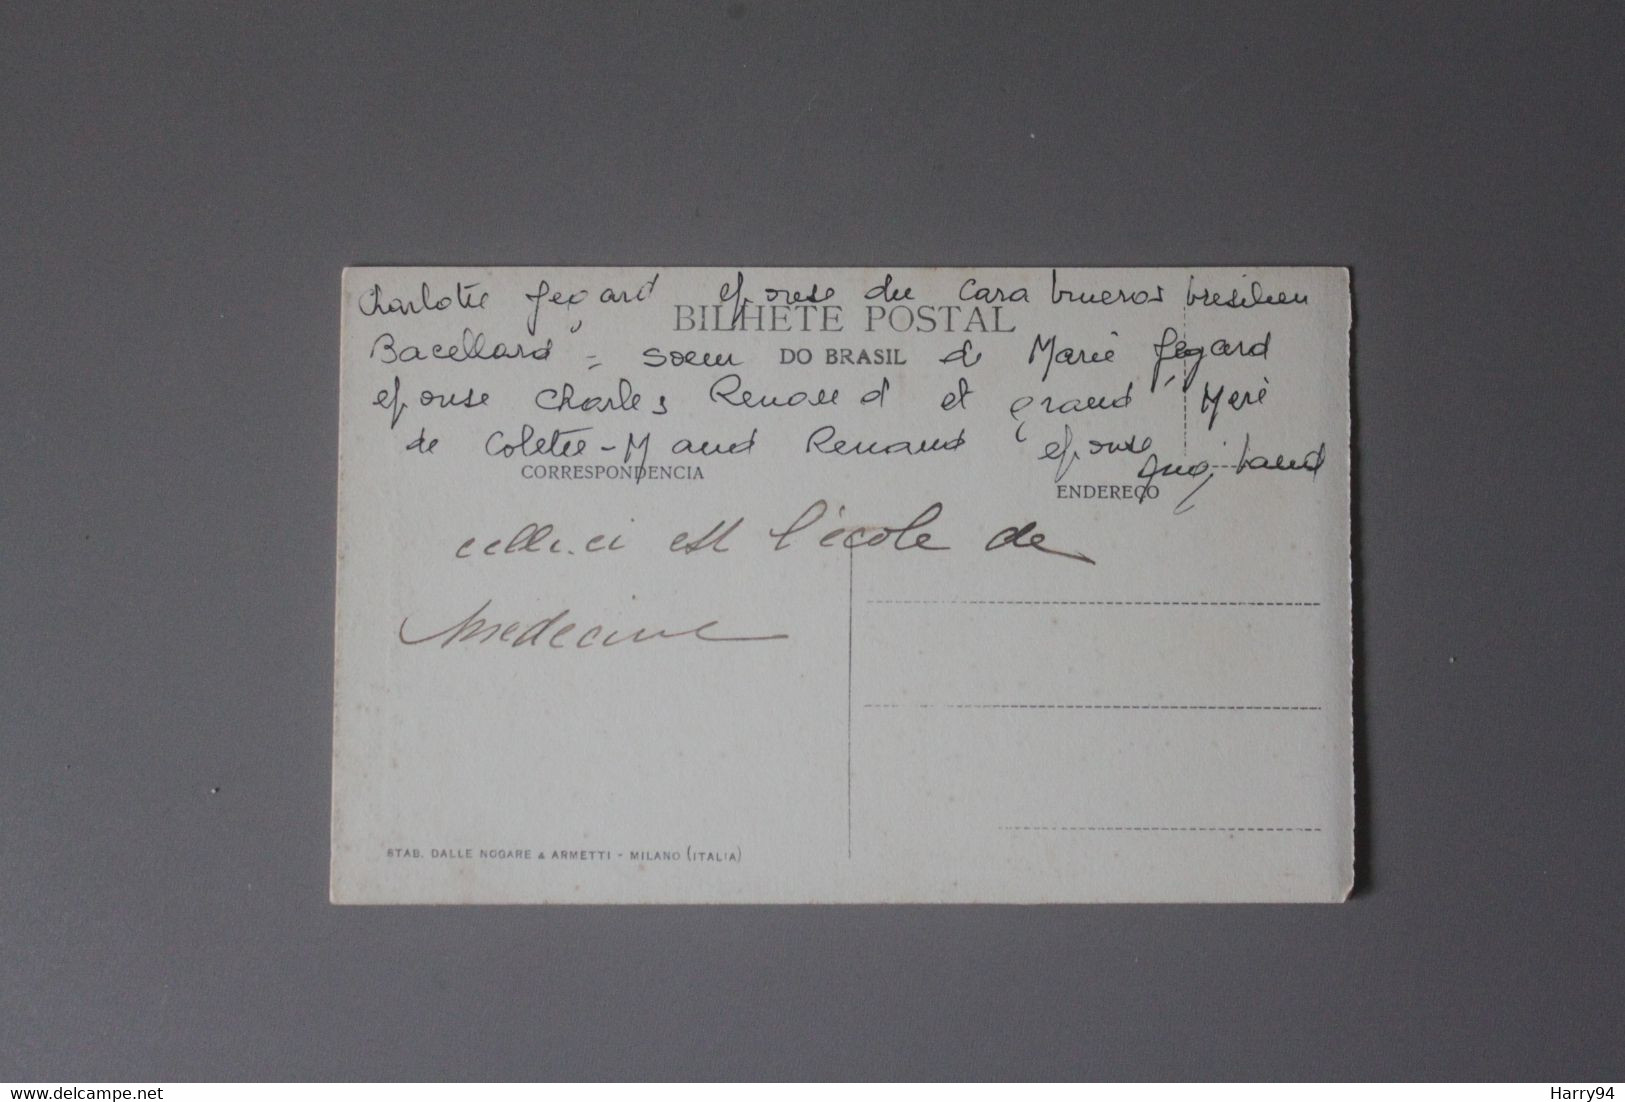 Charlotte Fégard épouse du Cara bineros bresilien
BILHETE POSTAL
Bacellard = soeur de Marie Fégard
DO BRASIL
épouse Charles Renaud et grand Mère
de Colette-Maud Renaud épouse
CORRESPONDENCIA
ENDEREÇO
celle.ci est l'école de
Medecine
STAB. DALLE NOGARE & ARMETTI - MILANO (ITALIA)
delcampe.net
Harry94